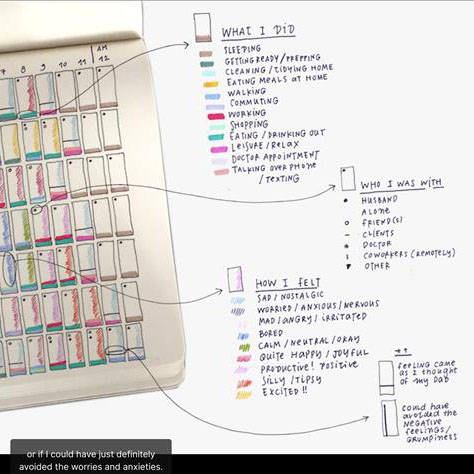 AM
7 8 9 10 11 12
WHAT I DID
SLEEPING
GETTING READY/PREPPING
CLEANING/TIDYING HOME
EATING MEALS AT HOME
WALKING
COMMUTING
WORKING
SHOPPING
EATING/DRINKING OUT
LEISURE/RELAX
DOCTOR APPOINTMENT
TALKING OVER PHONE
/TEXTING
WHO I WAS WITH
HUSBAND
ALONE
FRIEND(S)
CLIENTS
DOCTOR
COWORKERS (REMOTELY)
OTHER
HOW I FELT
SAD/NOSTALGIC
WORRIED/ANXIOUS/NERVOUS
MAD/ANGRY/IRRITATED
BORED
CALM/NEUTRAL/OKAY
QUITE HAPPY/JOYFUL
PRODUCTIVE! POSITIVE
SILLY/TIPSY
EXCITED!!
**
FEELING CAME
AS I THOUGHT
OF MY DAD
COULD HAVE
AVOIDED THE
NEGATIVE
FEELINGS/
GRUMPINESS
or if I could have just definitely
avoided the worries and anxieties.